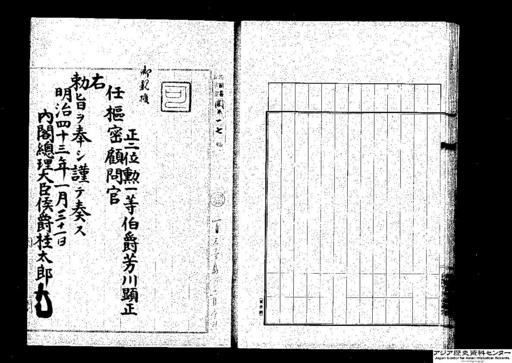 御親璽
正二位勲一等伯爵芳川顯正
任樞密顧問官
右
勅旨ヲ奉シ謹テ奏ス
明治四十三年一月三十一日
內閣總理大臣侯爵桂太郎
アジア歴史資料センター
Japan Center for Asian Historical Records